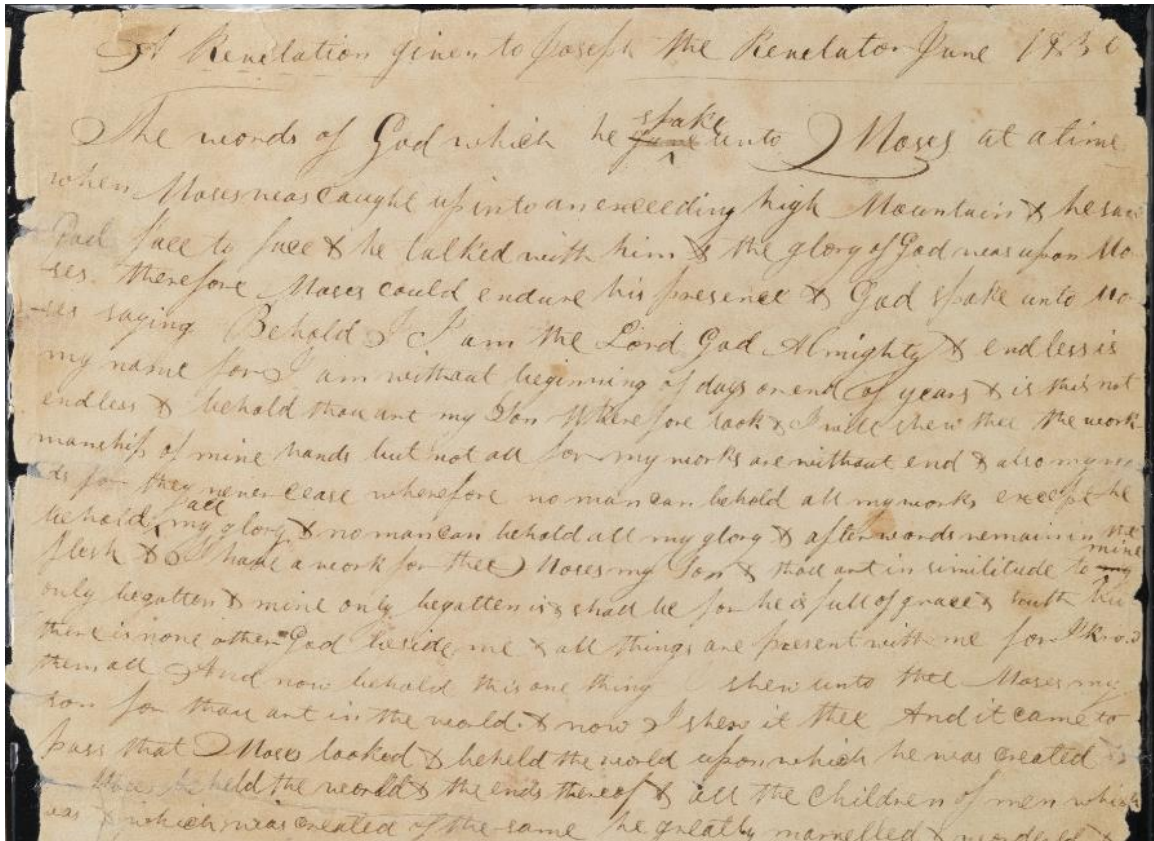 A Revelation given to Joseph the Revelator June 1830
The words of God which he gave spake unto Moses at a time
when Moses was caught up into an exceeding high Mountain & he saw
God face to face & he talked with him & the glory of God was upon Mo
ses therefore Moses could endure his presence & God spake unto Mo-
ses saying Behold I I am the Lord God Almighty & endless is
my name for I am without beginning of days or end of years & is this not
endless & behold thou art my Son Wherefore look & I will shew thee the work
manship of mine hands but not all for my works are without end & also my wo
ds for they never cease wherefore no man can behold all my works except he
behold all my glory & no man can behold all my glory & after words remain in the
flesh & I have a work for thee Moses my Son & thou art in similitude to my mine
only begotten & mine only begotten is & shall be for he is full of grace & truth
there is none other God beside me & all things are present with me for I know
them all And now behold this one thing shew unto thee Moses my
son for thou art in the world & now I shew it thee And it came to
pass that Moses looked & beheld the world upon which he was created
Moses beheld the world & the ends thereof & all the children of men which
was & which was created of the same he greatly marvelled & wondered &